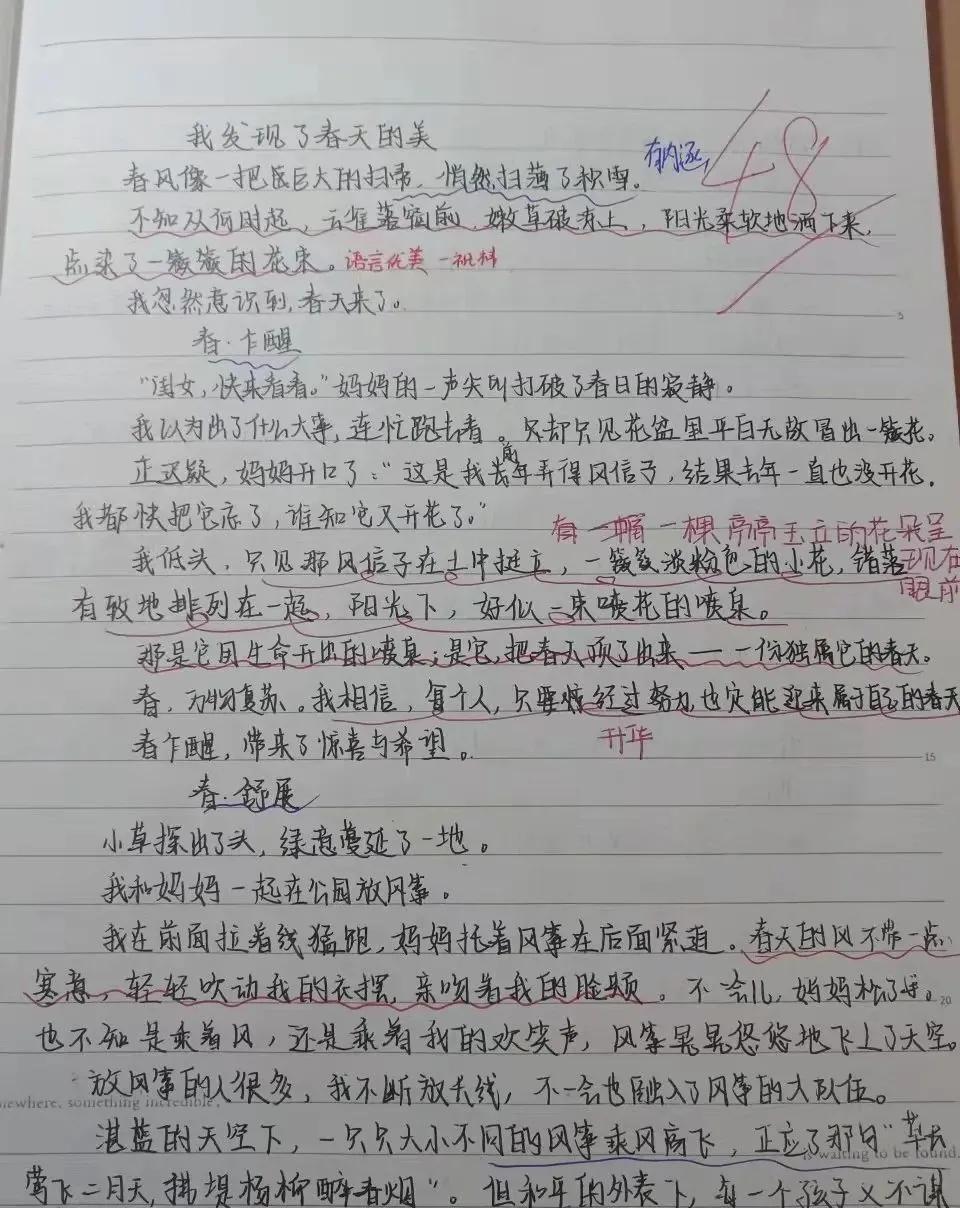 我发现了春天的美
有内涵
48
春风像一把巨大的扫帚，悄然扫薄了积雪。
不知从何时起，云雀落窗前，嫩草破冻土，阳光柔软地洒下来，
点染了一簇簇的花朵。语言优美
我忽然意识到，春天来了。
5
春·乍醒
“闺女，快来看看。”妈妈的一声尖叫打破了春日的寂静。
我以为出了什么大事，连忙跑去看。却只见花盆里平白无故冒出一簇花。
正迟疑，妈妈开口了：“这是我前年弄得风信子，结果去年一直也没开花，
我都快把它忘了，谁知它又开花了。”
有一幅一棵亭亭玉立的花朵呈
现在
眼前
我低头，只见那风信子在土中挺立，一簇簇淡粉色的小花，错落
有致地排列在一起，阳光下，好似一束喷花的喷泉。
那是它用生命开出的喷泉；是它，把春天顶了出来——一份独属它的春天。
春，万物复苏。我相信，每个人，只要经过努力，也定能迎来属于自己的春天
升华
春乍醒，带来了惊喜与希望。
15
春·舒展
小草探出了头，绿意蔓延了一地。
我和妈妈一起在公园放风筝。
我在前面拉着线猛跑，妈妈托着风筝在后面紧追。春天的风不带一点
寒意，轻轻吹动我的衣摆，亲吻着我的脸颊。不会儿，妈妈松了手。
20
也不知是乘着风，还是乘着我的欢笑声，风筝晃晃悠悠地飞上了天空。
放风筝的人很多，我不断放长线，不一会也融入了风筝的大队伍。
newhere, something incredible
湛蓝的天空下，一只只大小不同的风筝乘风高飞，正应了那句“草长
is waiting to be found.
莺飞二月天，拂堤杨柳醉春烟”。但和平的外表下，每一个孩子又不谋